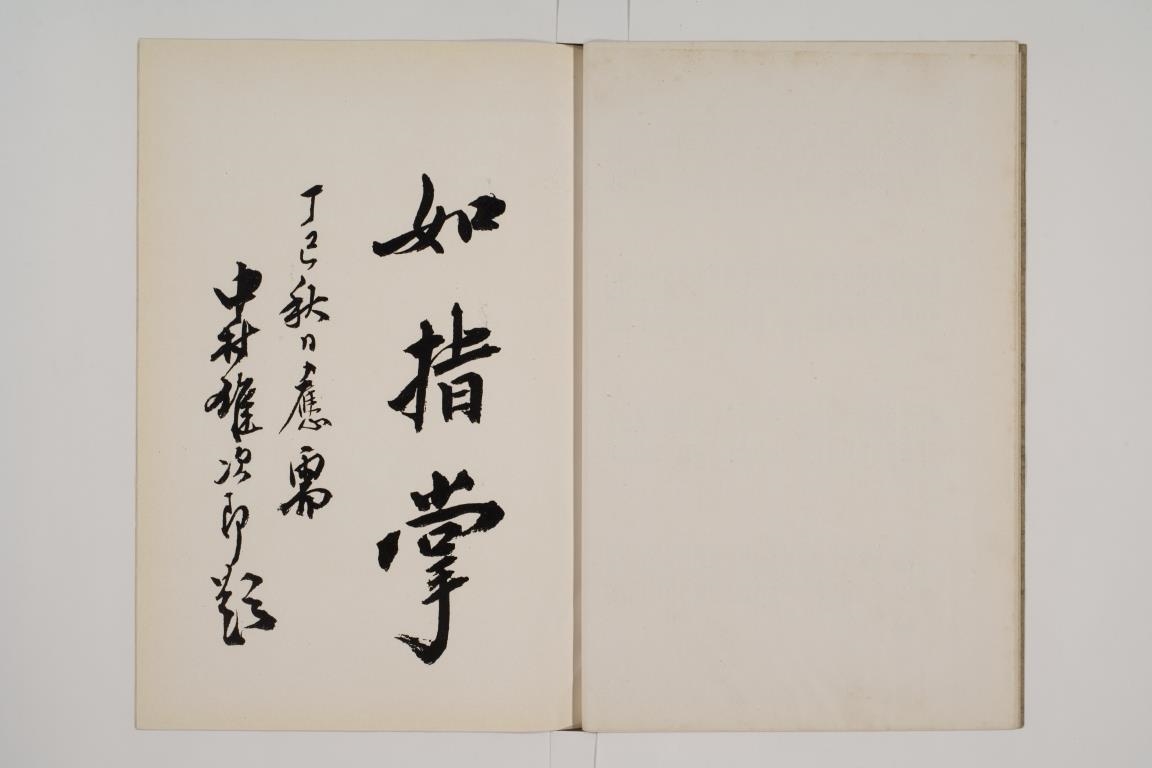 如指掌
丁巳秋日應需
中村雄次郎題